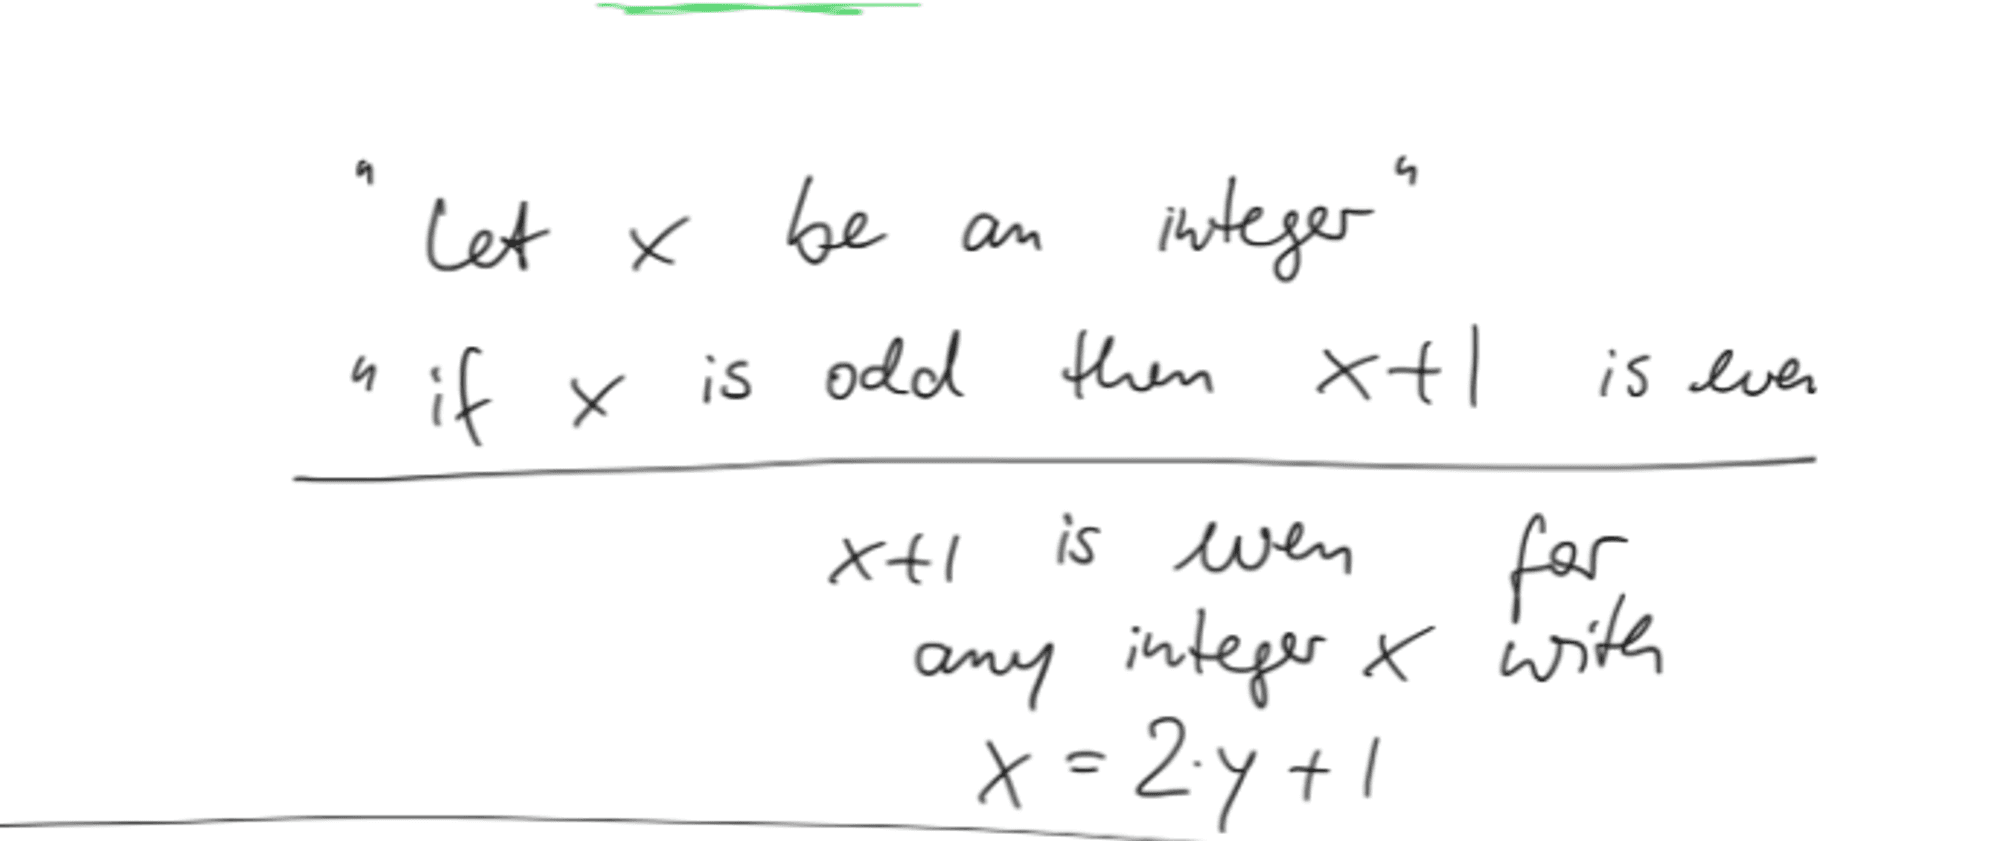 "Let x be an integer"
"if x is odd then x+1 is even
x+1 is even for
any integer x with
x = 2·y + 1